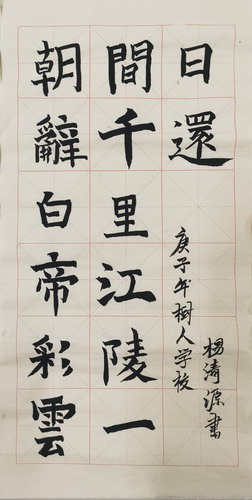 朝辭白帝彩雲
間千里江陵一
日還
庚子年樹人学校
楊 源書